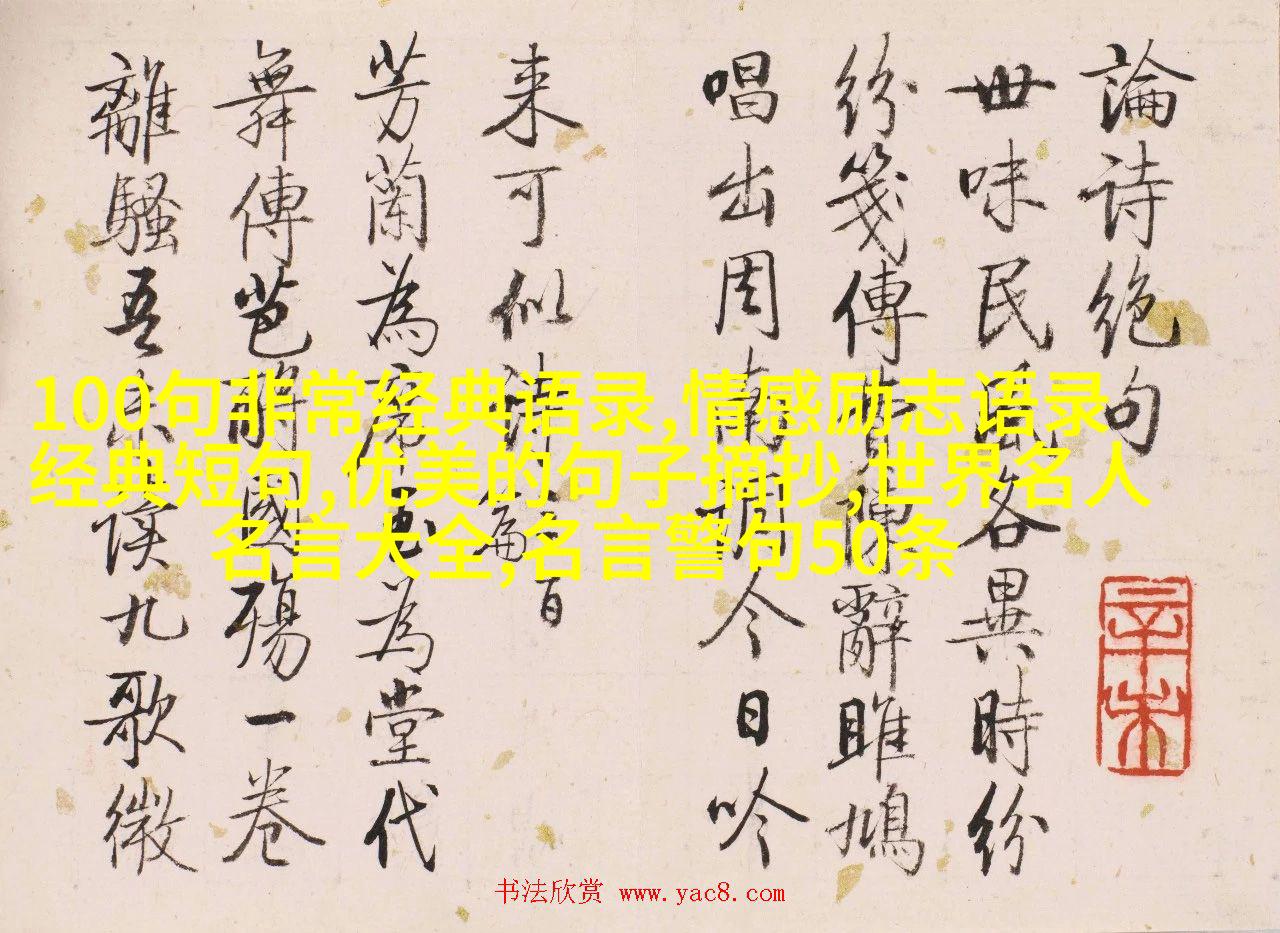 論詩绝句
世味民風各異時紛
紛箋傳辭雎鳩
唱出周南調今日吟
来可似詩
芳蘭為席為堂代
舞傳芭國殤一卷
離騷吾誤九歌微
辛未
100句非常经典语录,情感励志语录
经典短句,优美的句子摘抄,世界名人
名言大全,名言警句50条
书法欣赏 www.yac8.com